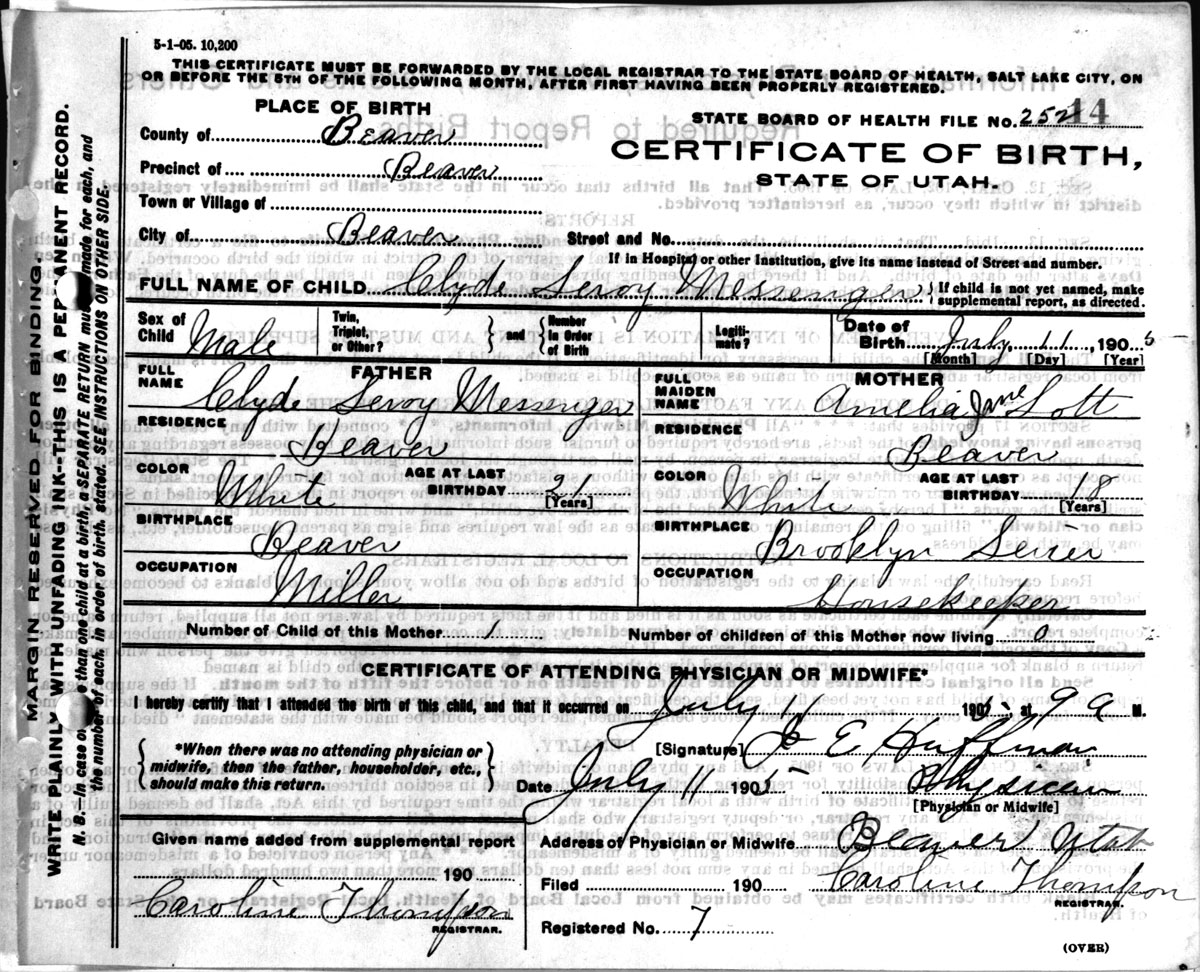 5-1-05. 10,200
THIS CERTIFICATE MUST BE FORWARDED BY THE LOCAL REGISTRAR TO THE STATE BOARD OF HEALTH, SALT LAKE CITY, ON
OR BEFORE THE 5TH OF THE FOLLOWING MONTH, AFTER FIRST HAVING BEEN PROPERLY REGISTERED.
PLACE OF BIRTH
STATE BOARD OF HEALTH FILE No. 252 44
County of Beaver
CERTIFICATE OF BIRTH,
Precinct of Beaver
STATE OF UTAH.
Town or Village of
City of Beaver Street and No.
If in Hospital or other Institution, give its name instead of Street and number.
FULL NAME OF CHILD Clyde Leroy Messenger { If child is not yet named, make supplemental report, as directed.
Sex of Child Male Twin, Triplet, or Other? } and { Number in Order of Birth Legiti-mate? Date of Birth July 11, 190
[Month] [Day] [Year]
FATHER
FULL NAME Clyde Leroy Messenger
RESIDENCE Beaver
COLOR White AGE AT LAST BIRTHDAY 21
[Years]
BIRTHPLACE Beaver
OCCUPATION Miller
MOTHER
FULL MAIDEN NAME Amelia Jane Lott
RESIDENCE Beaver
COLOR White AGE AT LAST BIRTHDAY 18
[Years]
BIRTHPLACE Brooklyn Sevier
OCCUPATION Housekeeper
Number of Child of this Mother 1 Number of children of this Mother now living 0
CERTIFICATE OF ATTENDING PHYSICIAN OR MIDWIFE*
I hereby certify that I attended the birth of this child, and that it occurred on July 11 1905, at 9 a M.
{ *When there was no attending physician or
midwife, then the father, householder, etc.,
should make this return. }
[Signature] E Huffman
Date July 11 1905 Physician
[Physician or Midwife]
Given name added from supplemental report
190
Caroline Thompson
REGISTRAR.
Address of Physician or Midwife Beaver Utah
Filed 190 Caroline Thompson
REGISTRAR.
Registered No. 7
(OVER)
MARGIN RESERVED FOR BINDING.
WRITE PLAINLY WITH UNFADING INK--THIS IS A PERMANENT RECORD.
N. B.—In case of more than one child at a birth, a SEPARATE RETURN must be made for each, and
the number of each, in order of birth, stated. SEE INSTRUCTIONS ON OTHER SIDE.